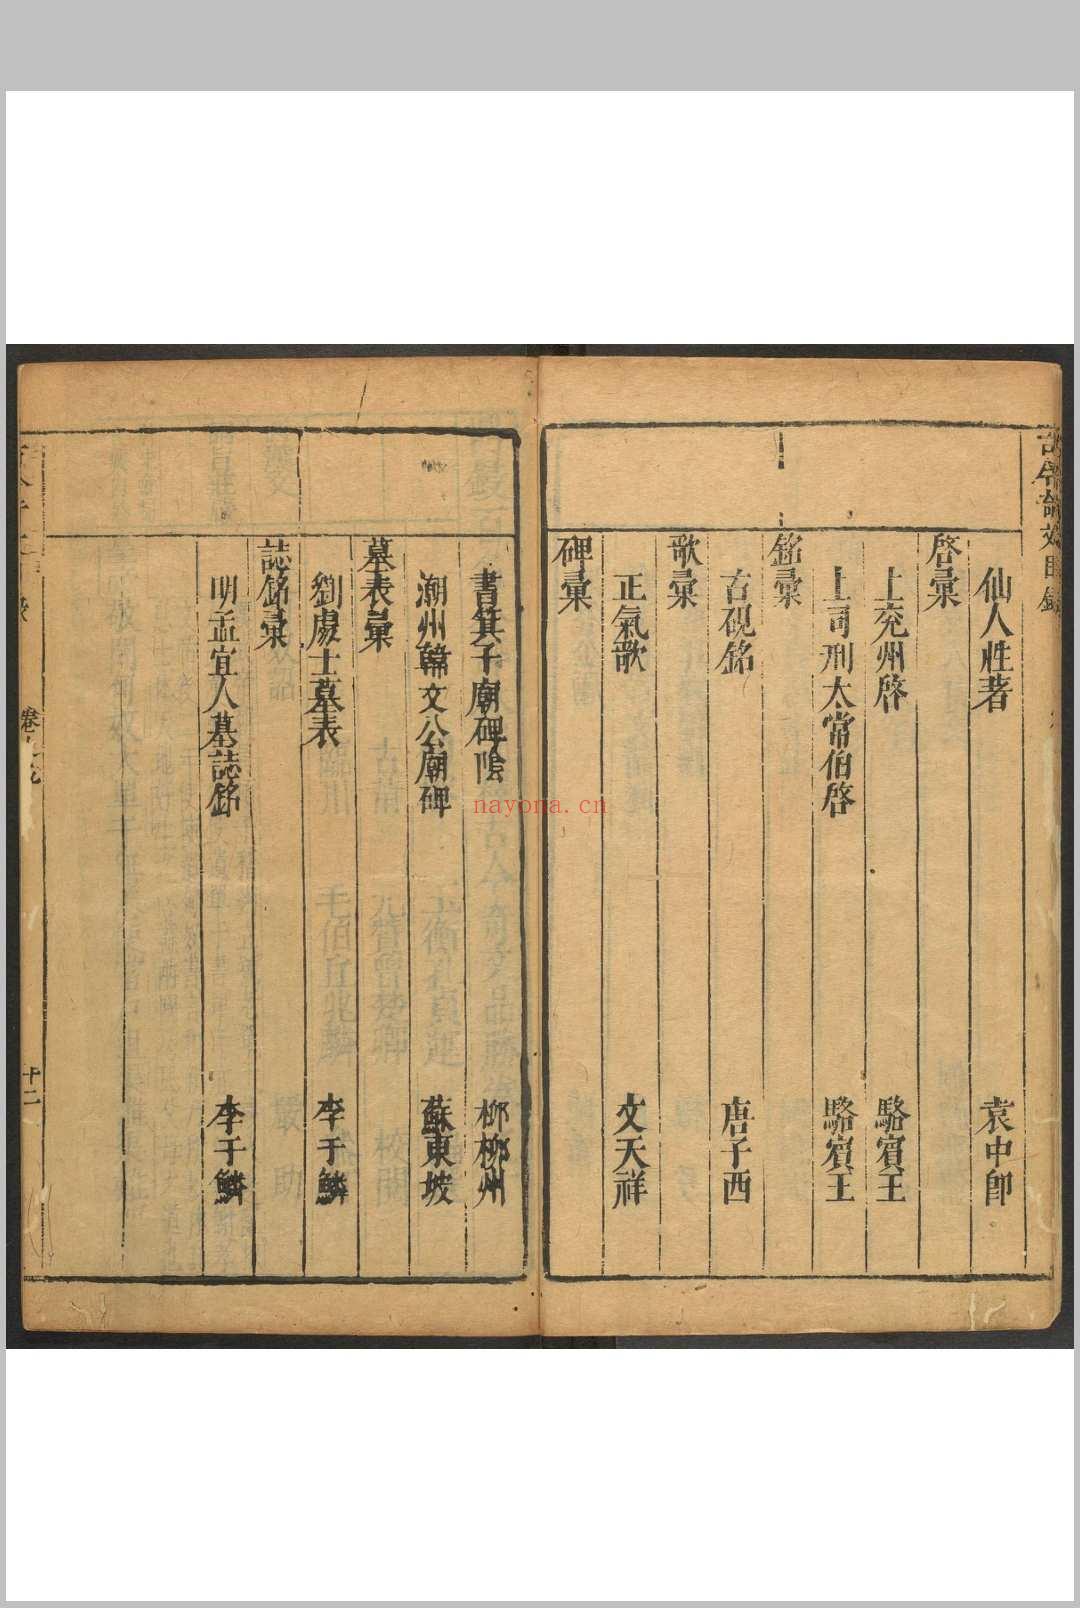 仙人性著 袁中郎
啓彚
上兖州啓 駱賓王
上司刑太常伯啓 駱賓王
銘彚
古硯銘 唐子西
歌彚
正氣歌 文天祥
碑彚
書箕子廟碑陰 柳柳州
潮州韓文公廟碑 蘇東坡
墓表彚
劉處士墓表 李于鱗
誌銘彚
明孟宜人墓誌銘 李于鱗
十二
nayona.cn